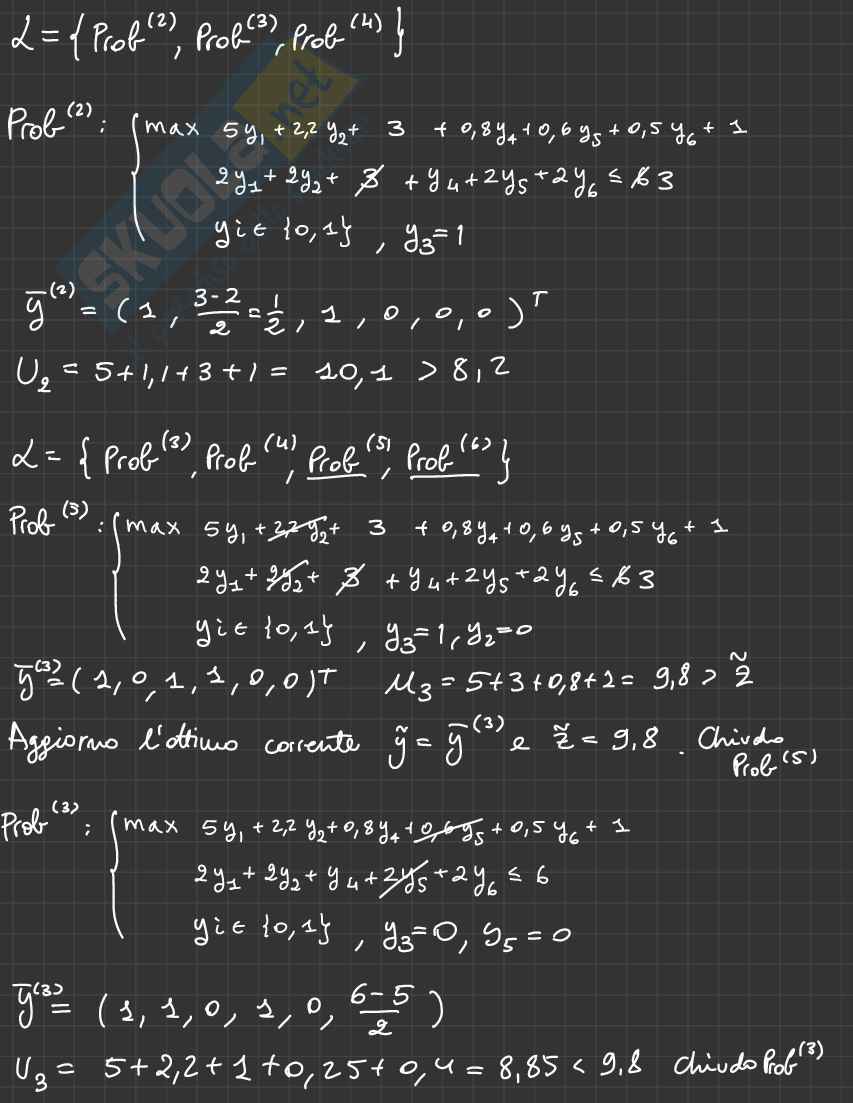 L = { Prob^(2), Prob^(3), Prob^(4) }
Prob^(2): { max 5y₁ + 2,2 y₂ + 3 + 0,8y₄ + 0,6 y₅ + 0,5 y₆ + 1
2y₁ + 2y₂ + 3 + y₄ + 2y₅ + 2y₆ ≤ 6 3
yi ∈ {0,1} , y₃ = 1
y̅^(2) = (1, 3-2/2 = 1/2, 1, 0, 0, 0)^T
U₂ = 5+1,1+3+1 = 10,1 > 8,2
L = { Prob^(3), Prob^(4), Prob^(5), Prob^(6) }
Prob^(3): { max 5y₁ + 2,2 y₂ + 3 + 0,8 y₄ + 0,6 y₅ + 0,5 y₆ + 1
2y₁ + 2y₂ + 3 + y₄ + 2y₅ + 2y₆ ≤ 6 3
yi ∈ {0,1} , y₃=1, y₂=0
y̅^(3) = (1, 0, 1, 1, 0, 0)^T u₃ = 5+3+0,8+1 = 9,8 > z̃
Aggiorno l'ottimo corrente ỹ = y̅^(3) e z̃ = 9,8 . Chiudo
Prob^(5)
Prob^(3): { max 5y₁ + 2,2 y₂ + 0,8 y₄ + 0,6 y₅ + 0,5 y₆ + 1
2y₁ + 2y₂ + y₄ + 2y₅ + 2y₆ ≤ 6
yi ∈ {0,1} , y₃=0, y₅=0
y̅^(3) = (1, 1, 0, 1, 0, 6-5/2)
U₃ = 5+2,2+1+0,25+0,4 = 8,85 < 9,8 chiudo Prob^(3)
SKUOLA.net